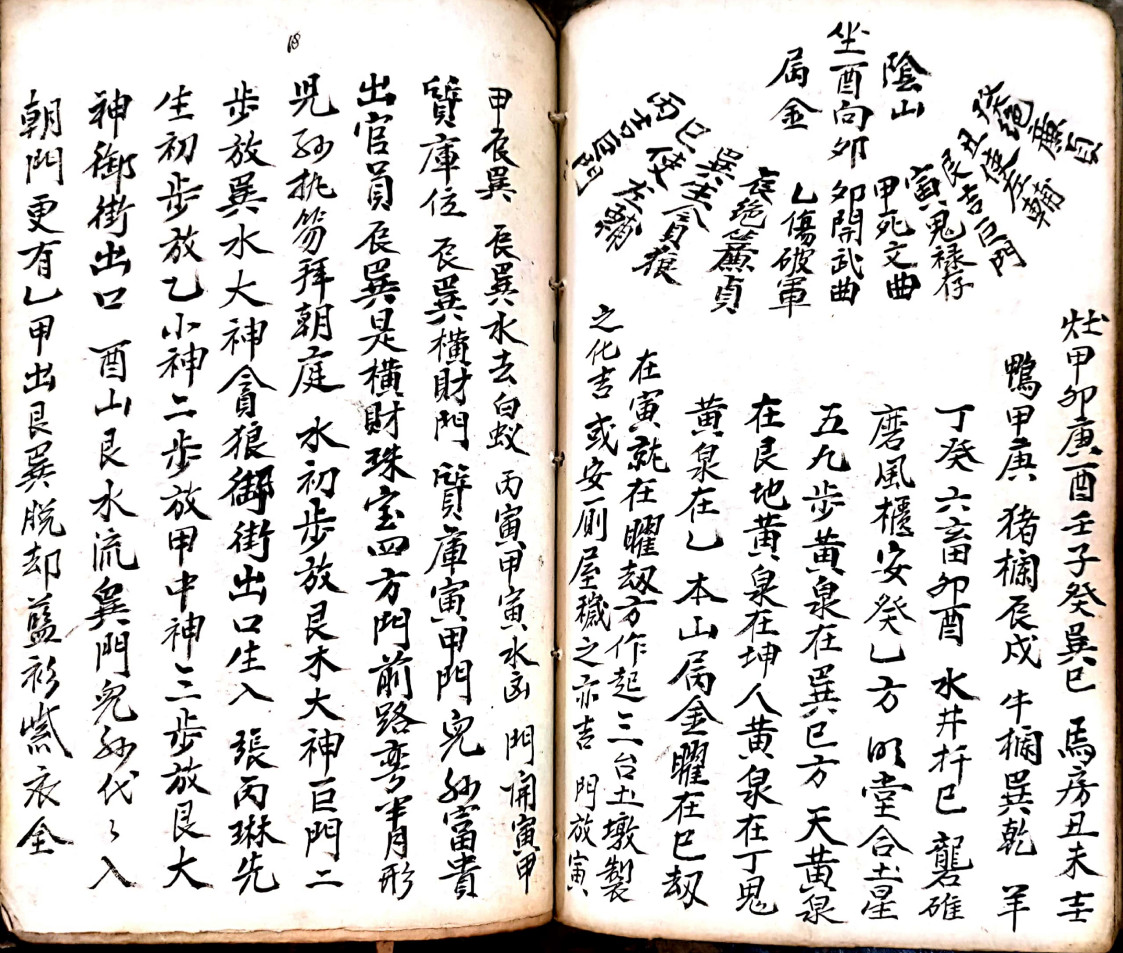 陰山
坐酉向夘
屬金
癸絕廉貞
丑使左輔
艮吉巨門
寅鬼祿存
甲死文曲
夘開武曲
乙傷破軍
辰絕簾貞
巽生貪狼
巳使左輔
丙吉巨門
灶甲夘庚酉壬子癸巽巳 馬房丑未壬
鴨甲庚 猪欄辰戍 牛欄巽乾 羊
丁癸六畜夘酉 水井扦巳 礱碓
磨風櫃安癸乙方 明堂合土星
五九步黄泉在巽巳方 天黄泉
在艮地黄泉在坤人黄泉在丁鬼
黄泉在乙 本山屬金曜在巳刼
在寅就在曜刼方作起三台土墩製
之化吉 或安厠屋穢之亦吉 門放寅
甲辰巽 辰巽水去白蚁 丙寅甲寅水凶 門開寅甲
質庫位 辰巽横財門 質庫寅甲門 兒孙富貴
出官員辰巽是横財珠宝四方門前路弯半月形
児孙执笏拜朝庭 水初步放艮木大神巨門二
步放巽水大神貪狼御街出口生入 張丙琳先
生初步放乙小神二步放甲中神三步放艮大
神御街出口 酉山艮水流巽門兒孙代々入
朝門更有乙甲出艮巽脱却藍衫紫衣全